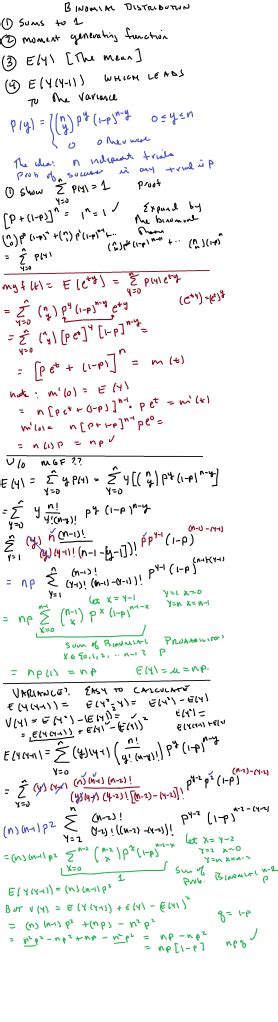 BINOMIAL DISTRIBUTION
① SUMS TO 1
② moment generating function
③ E(Y) [The mean]
④ E(Y(Y-1)) WHICH LEADS
TO The Variance
P(y) = { (n y) p^y (1-p)^{n-y} 0≤y≤n
0 otherwise
The idea: n independent trials
Prob of success in any trial is p
① show Σ_{y=0}^{n} P(y) = 1 Proof
[p+(1-p)]^n = 1^n = 1 ✓ Expand by
the binomial
= Σ_{y=0}^{n} P(y)
mgf(t) = E(e^{ty}) = Σ_{y=0}^{n} P(y) e^{ty}
= Σ_{y=0}^{n} (n y) p^y (1-p)^{n-y} e^{ty}
= Σ_{y=0}^{n} (n y) [pe^t]^y [1-p]^{n-y} =
= [pe^t + (1-p)]^n = m(t)
note: m'(0) = E(Y)
= n[pe^t + (1-p)]^{n-1} · pe^t = m'(t)
m'(0) = n[p+1-p]^{n-1} pe^0 =
= n(1)p = np ✓
W/O MGF ??
E(Y) = Σ_{y=0}^{n} y P(y) = Σ_{y=0}^{n} y [(n y) p^y (1-p)^{n-y}]
= Σ_{y=0}^{n} y n!/(y!(n-y)!) p^y (1-p)^{n-y}
Σ_{y=1}^{n} (y) n(n-1)!/((y)(y-1)!(n-1-[y-1])!) p p^{y-1} (1-p)^{(n-1)-(y-1)}
= np Σ_{y=1}^{n} (n-1)!/((y-1)!((n-1)-(y-1))!) p^{y-1} (1-p)^{(n-1)-(y-1)}
let x = y-1 y=1 x=0
y=n x=n-1
= np Σ_{x=0}^{n-1} (n-1 x) p^x (1-p)^{n-1-x}
Sum of Binomial Probabilities
x ∈ {0,1,2,...n-1} p
= np(1) = np E(Y) = μ = np
VARIANCE? EASY TO CALCULATE
E(Y(Y-1)) = E(Y²-Y) = E(Y²) - E(Y)
V(Y) = E(Y²) - (E(Y))²
= E(Y(Y-1)) + E(Y) - E(Y)²
E(Y²) =
E(Y(Y-1)) + E(Y)
E(Y(Y-1)) = Σ_{y=0}^{n} (y)(y-1) (n!/(y!(n-y)!)) p^y (1-p)^{n-y}
= Σ_{y=0}^{n} (y)(y-1) (n)(n-1)(n-2)!/((y)(y-1)(y-2)![(n-2)-(y-2)]!) p^{y-2} p² (1-p)^{(n-2)-(y-2)}
(n)(n-1)p² Σ_{y=2}^{n} (n-2)!/((y-2)!((n-2)-(y-2))!) p^{y-2} (1-p)^{n-2-(y-2)}
let x = y-2
y=2 x=0
y=n x=n-2
= (n)(n-1)p² Σ_{x=0}^{n-2} (n-2 x) p^x (1-p)^{n-2-x}
1
Sum of Binomial n-2
Prob. p
E(Y(Y-1)) = (n)(n-1)p²
But V(Y) = E(Y(Y-1)) + E(Y) - E(Y)²
= (n)(n-1)p² + (np) - n²p² q = 1-p
= n²p² - np² + np - n²p² = np - np²
= np[1-p] npq ✓